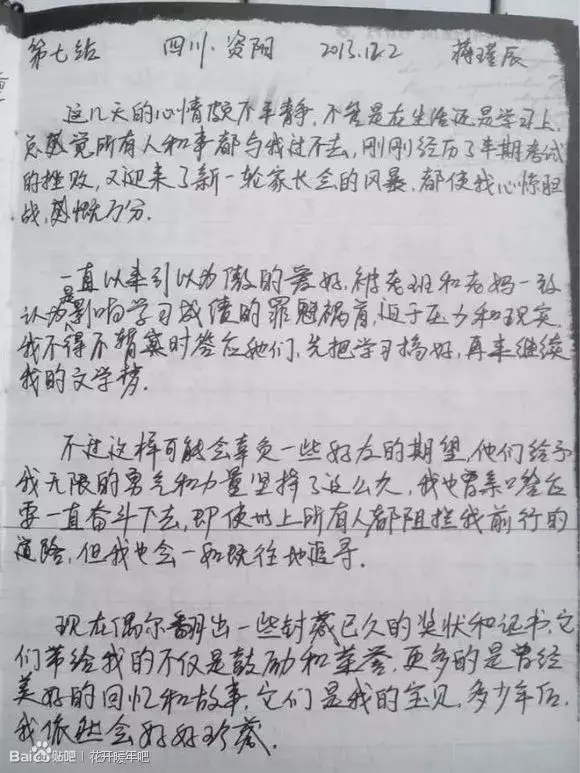 第七站 四川·资阳 2013.12.2 蒋瑾辰
这几天的心情颇不平静,不管是在生活还是学习上,
总感觉所有人和事都与我过不去,刚刚经历了半期考试
的挫败,又迎来了新一轮家长会的风暴,都使我心惊胆
战,感慨万分.
一直以来引以为傲的爱好,被老班和老妈一致
认为是影响学习成绩的罪魁祸首,迫于压力和现实,
我不得不暂时答应她们,先把学习搞好,再来继续
我的文学梦.
不过这样可能会辜负一些好友的期望,他们给予
我无限的勇气和力量坚持了这么久,我也曾亲口答应
要一直奋斗下去,即使世上所有人都阻拦我前行的
道路,但我也会一如既往地追寻.
现在偶尔翻出一些封藏已久的奖状和证书,它
们带给我的不仅是鼓励和荣誉,更多的是曾经
美好的回忆和故事,它们是我的宝贝,多少年后,
我依然会好好珍藏.
Bai 贴吧 | 花开暖年吧